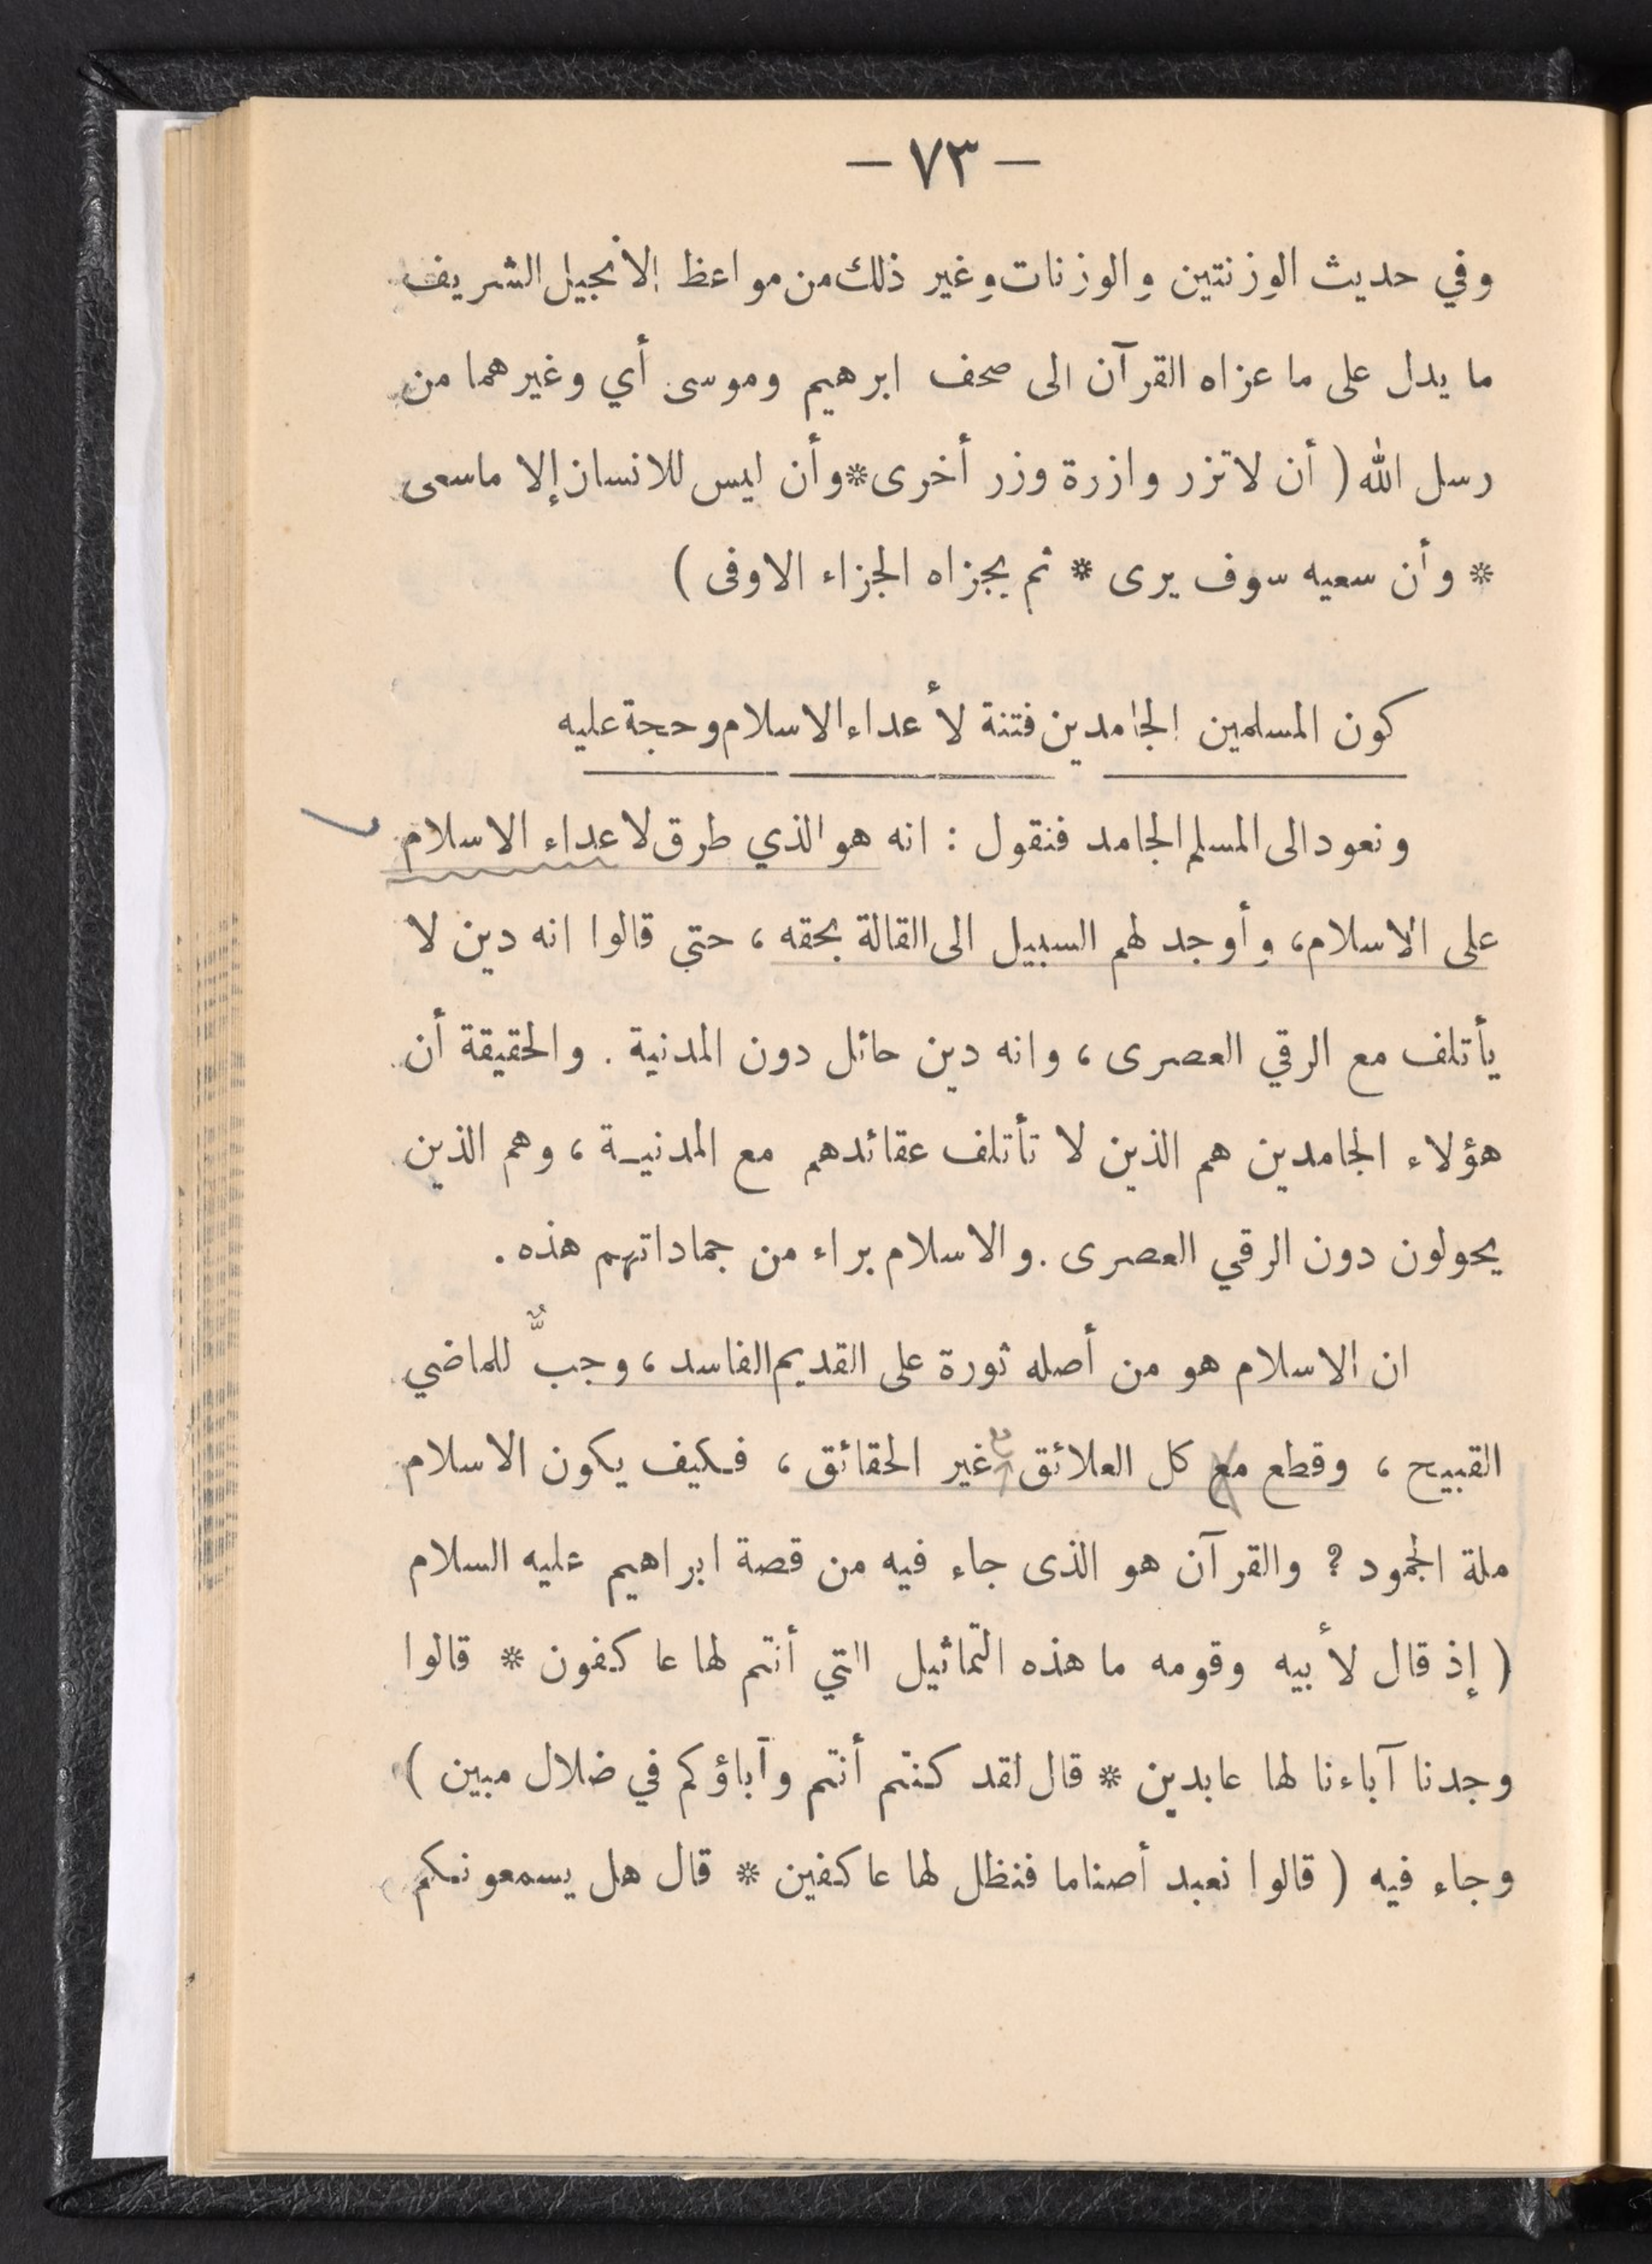 — ٧٣ —
وفي حديث الوزنتين والوزنات وغير ذلك من مواعظ الانجيل الشريف
ما يدل على ما عزاه القرآن الى صحف ابرهيم وموسى أي وغيرهما من
رسل الله ( أن لا تزر وازرة وزر أخرى * وأن ليس للانسان إلا ماسعى
* وأن سعيه سوف يرى * ثم يجزاه الجزاء الاوفى )
كون المسلمين الجامدين فتنة لأعداء الاسلام وحجة عليه
ونعود الى المسلم الجامد فنقول : انه هو الذي طرق لاعداء الاسلام
على الاسلام، وأوجد لهم السبيل الى القالة بحقه ، حتي قالوا انه دين لا
يأتلف مع الرقي العصرى ، وانه دين حائل دون المدنية . والحقيقة أن
هؤلاء الجامدين هم الذين لا تأتلف عقائدهم مع المدنيـة ، وهم الذين
يحولون دون الرقي العصرى . والاسلام براء من جماداتهم هذه .
ان الاسلام هو من أصله ثورة على القديم الفاسد ، وجبٌّ للماضي
القبيح ، وقطع مع كل العلائق مع غير الحقائق ، فكيف يكون الاسلام
ملة الجمود ؟ والقرآن هو الذى جاء فيه من قصة ابراهيم عليه السلام
( إذ قال لأبيه وقومه ما هذه التماثيل التي أنتم لها عاكفون * قالوا
وجدنا آباءنا لها عابدين * قال لقد كنتم أنتم وآباؤكم في ضلال مبين )
وجاء فيه ( قالوا نعبد أصناما فنظل لها عاكفين * قال هل يسمعونكم